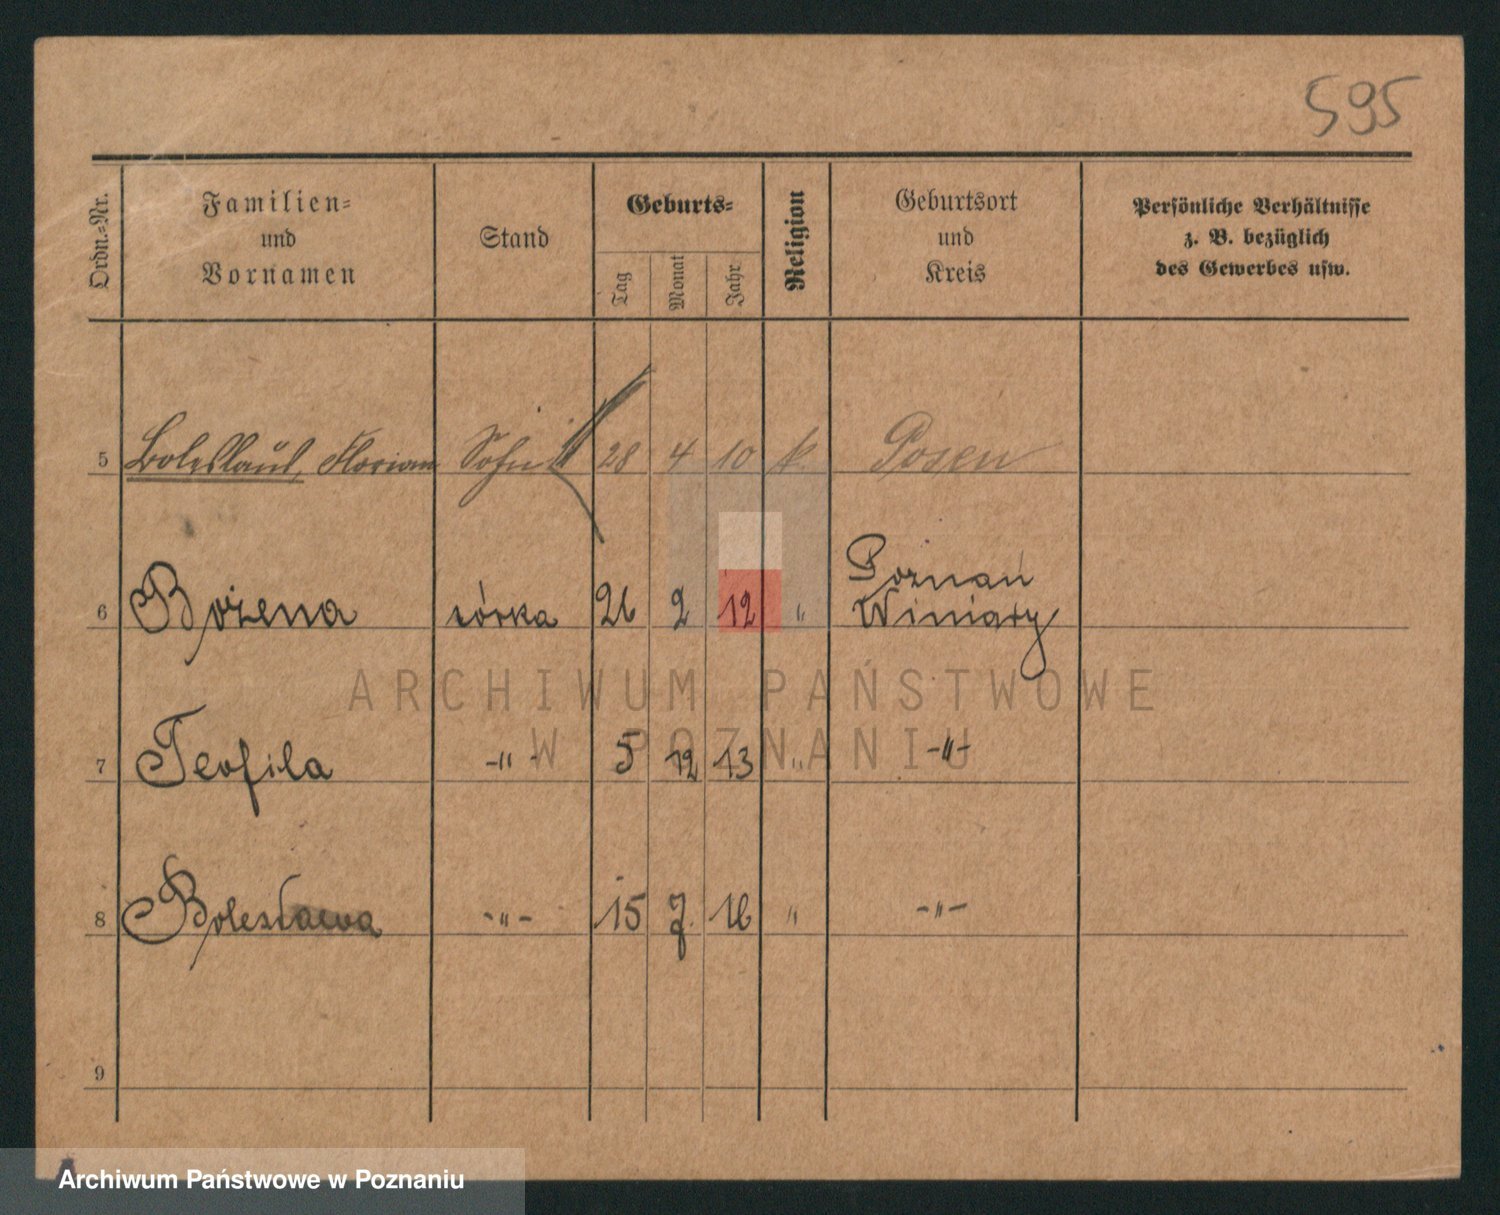 595
Ordn.-Nr.
Familien-
und
Vornamen
Stand
Geburts-
Tag
Monat
Jahr
Religion
Geburtsort
und
Kreis
Persönliche Verhältnisse
z. B. bezüglich
des Gewerbes usw.
5 Boleslaus, Florian Sohn 28 4 10 k. Posen
Poznań
6 Bożena córka 26 2 12 " Winiary
7 Teofila -"- 5 12 13 " -"-
8 Bolesława -"- 15 7. 16 " -"-
9
ARCHIWUM PAŃSTWOWE
W POZNANIU
Archiwum Państwowe w Poznaniu